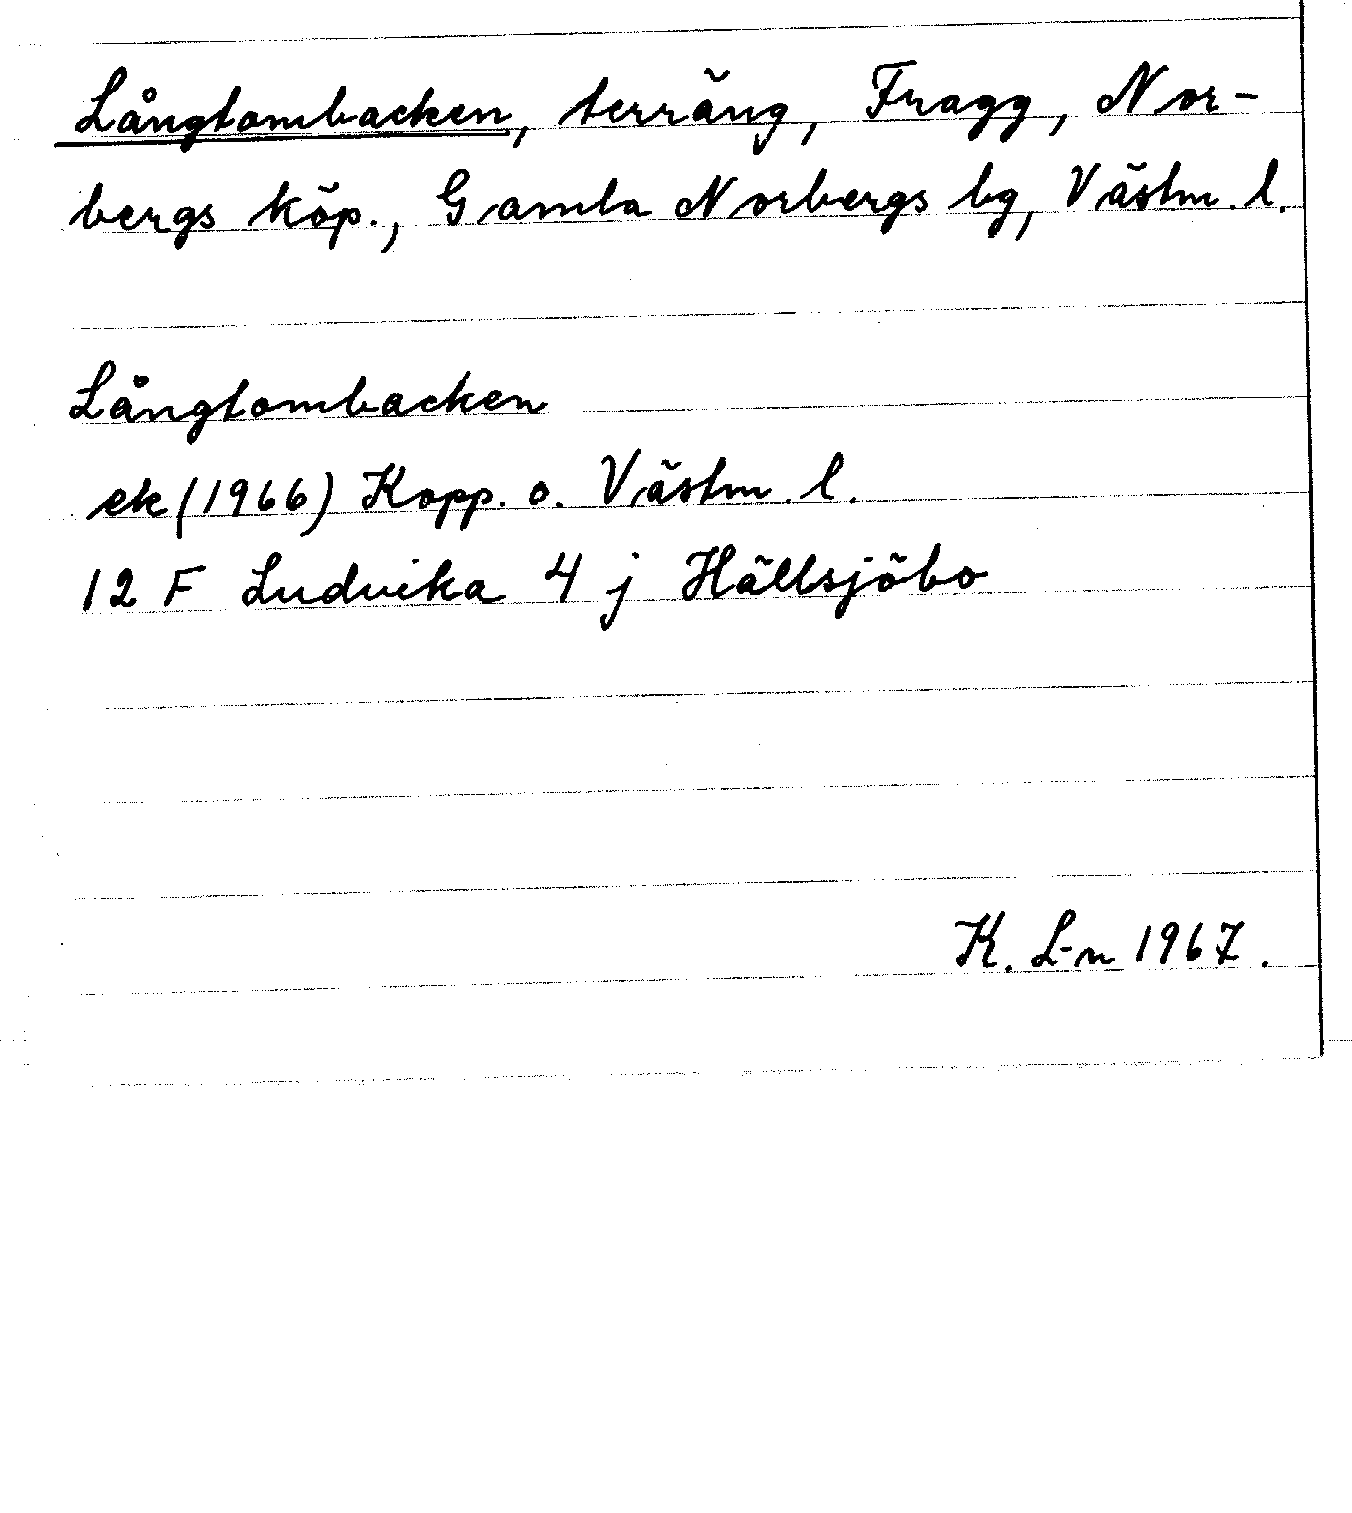 Långtombacken, terräng, Fragg, Nor-
bergs köp., Gamla Norbergs bg, Västm. l.
Långtombacken
ek (1966) Kopp. o. Västm. l.
12 F Ludvika 4 j Hällsjöbo
K. L-n 1967.